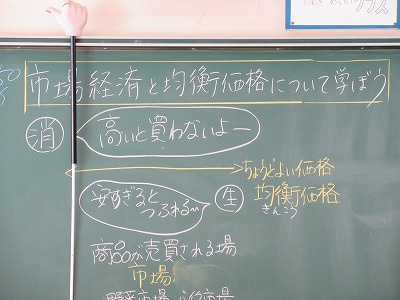 市場経済と均衡価格について学ぼう
消
高いと買わないよー
ちょうどよい価格
安すぎると
つぶれる〜
生
均衡価格
きんこう
商品が売買される場
市場
野菜市場